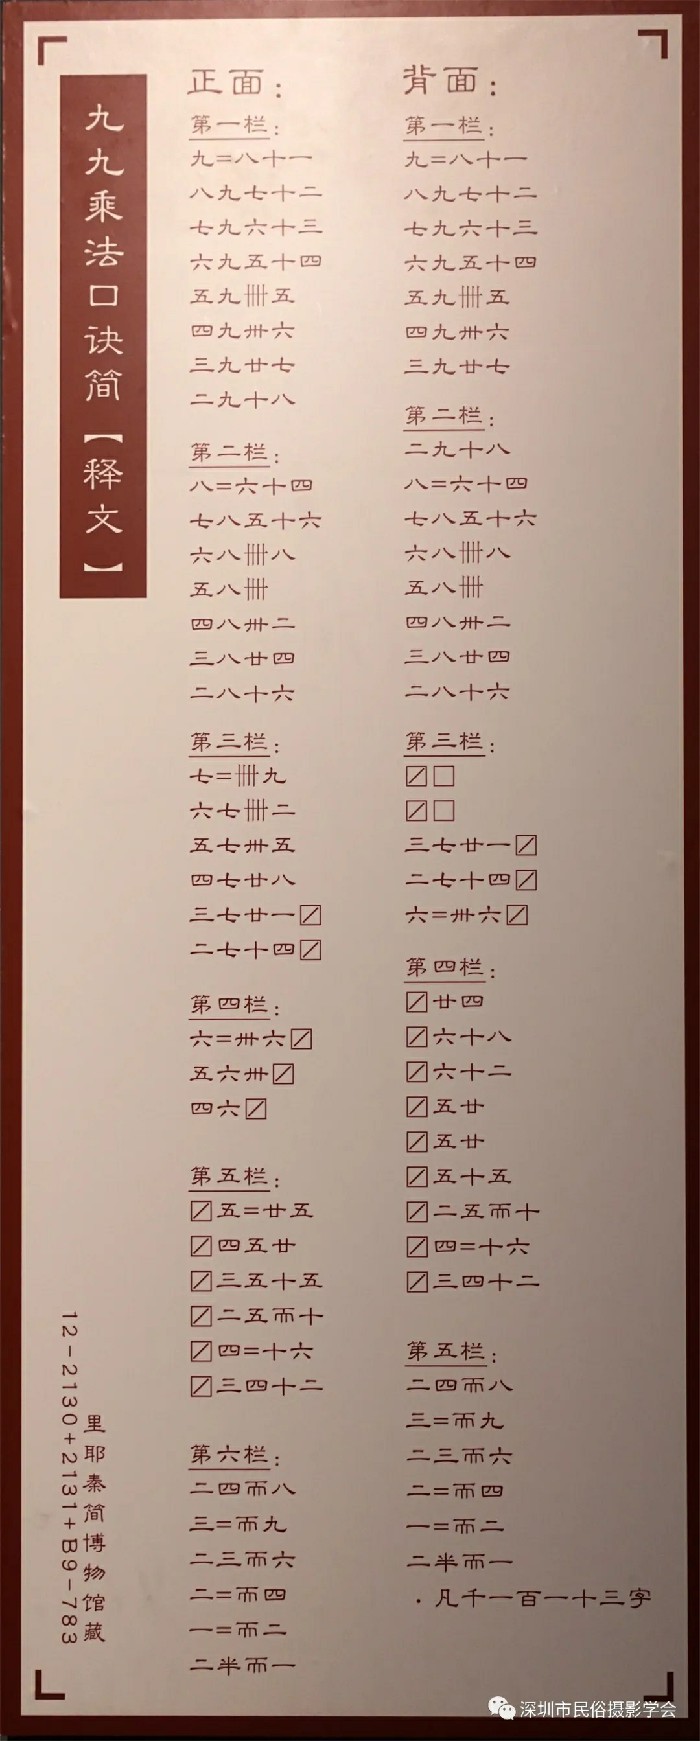 九九乘法口诀简【释文】
里耶秦简博物馆藏
12-2130+2131+B9-783
正面：
第一栏：
九=八十一
八九七十二
七九六十三
六九五十四
五九卌五
四九卅六
三九廿七
二九十八
第二栏：
八=六十四
七八五十六
六八卌八
五八卌
四八卅二
三八廿四
二八十六
第三栏：
七=卌九
六七卌二
五七卅五
四七廿八
三七廿一〼
二七十四〼
第四栏：
六=卅六〼
五六卅〼
四六〼
第五栏：
〼五=廿五
〼四五廿
〼三五十五
〼二五而十
〼四=十六
〼三四十二
第六栏：
二四而八
三=而九
二三而六
二=而四
一=而二
二半而一
背面：
第一栏：
九=八十一
八九七十二
七九六十三
六九五十四
五九卌五
四九卅六
三九廿七
第二栏：
二九十八
八=六十四
七八五十六
六八卌八
五八卌
四八卅二
三八廿四
二八十六
第三栏：
〼□
〼□
三七廿一〼
二七十四〼
六=卅六〼
第四栏：
〼廿四
〼六十八
〼六十二
〼五廿
〼五廿
〼五十五
〼二五而十
〼四=十六
〼三四十二
第五栏：
二四而八
三=而九
二三而六
二=而四
一=而二
二半而一
·凡千一百一十三字
深圳市民俗摄影学会